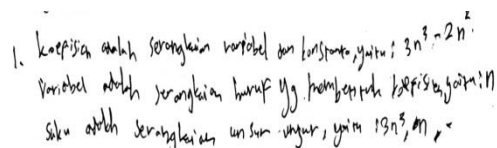 1. koefisien adalah serangkaian variabel dan konstanta, yaitu: 3n³ - 2n²
Variabel adalah serangkaian huruf yg membentuk koefisien, yaitu: n
Suku adalah serangkaian unsur-unsur, yaitu: 3n³,